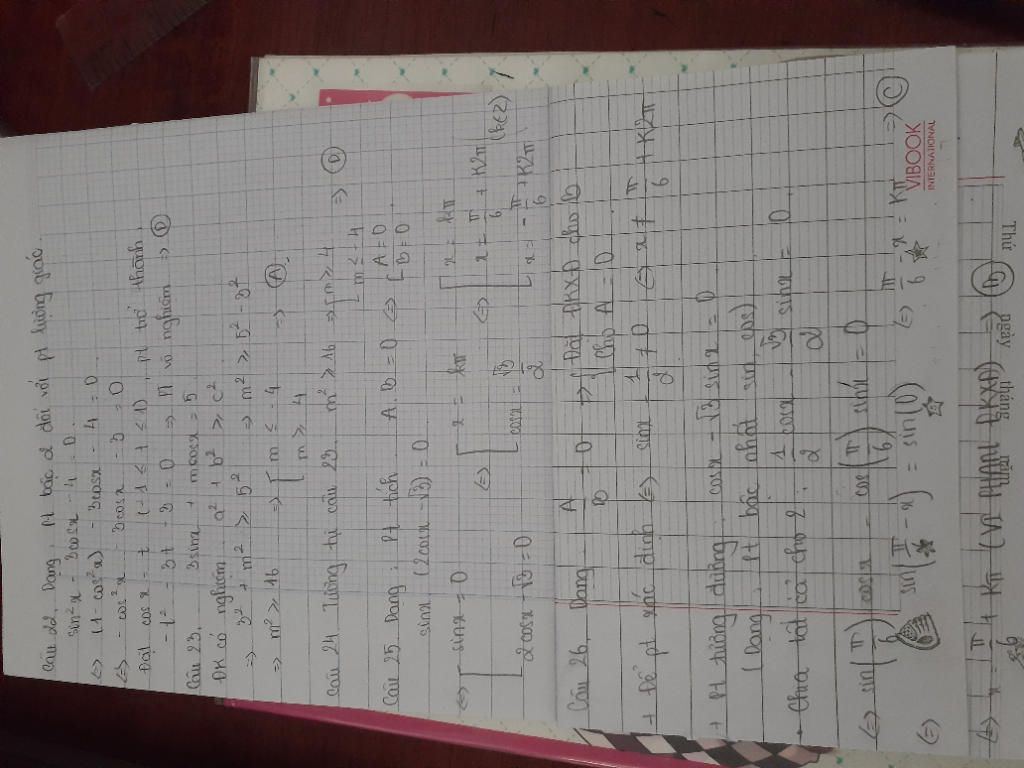 Câu 22. Dạng: Pt bậc 2 đối với pt lượng giác.
sin²x - 3cosx - 4 = 0.
<=> (1 - cos²x) - 3cosx - 4 = 0.
<=> - cos²x - 3cosx - 3 = 0
Đặt cosx = t (-1 ≤ t ≤ 1), pt trở thành,
-t² - 3t - 3 = 0 => pt vô nghiệm => (D)
Câu 23. 3sinx + mcosx = 5.
ĐK có nghiệm a² + b² ≥ c²
=> 3² + m² ≥ 5² => m² ≥ 5² - 3²
=> m² ≥ 16 => [ m ≤ -4 => (A).
m ≥ 4
Câu 24 Tương tự câu 23. m² ≥ 16 => [ m ≥ 4 => (D)
m ≤ -4
Câu 25 Dạng: Pt tích A.B = 0 <=> [ A = 0
B = 0
sinx (2cosx - √3) = 0
<=> [ sinx = 0 <=> [ x = kπ <=> [ x = kπ
2cosx - √3 = 0 cosx = √3/2 x = π/6 + k2π (k∈Z)
x = -π/6 + k2π
Câu 26. Dạng A/B = 0 => { Đặt ĐKXĐ cho B
Cho A = 0
+ Để pt xác định <=> sinx - 1/2 ≠ 0 <=> x ≠ π/6 + k2π
+ Pt tương đương: cosx - √3 sinx = 0
(Dạng: pt bậc nhất sin, cos)
Chia tất cả cho 2: 1/2 cosx - √3/2 sinx = 0
<=> sin(π/6) cosx - cos(π/6) sinx = 0
<=> sin(π/6 - x) = sin(0) <=> π/6 - x = kπ => (C)
<=> x = π/6 + kπ (Vì phải ĐKXĐ) =>
VIBOOK
INTERNATIONAL
Thứ ngày tháng năm